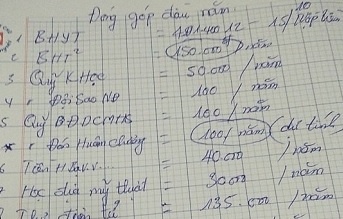 Đóng góp đầu năm.
1 BHYT = 12 - 15/10 nộp tiền
2 BHT² = 150.000đ/năm
3 Quỹ K Học = 50.000 / năm
4 " Đội Sao NĐ = 100 / năm
5 Quỹ BĐDCMHS = 100 / năm
* " Đón Huân Chương = 100/ năm (dự tính)
6 Tiền H v.v... = 40.000 / năm
7 Học địa mỹ thuật = 30000 / năm
8 điện tử = 135.000 / năm